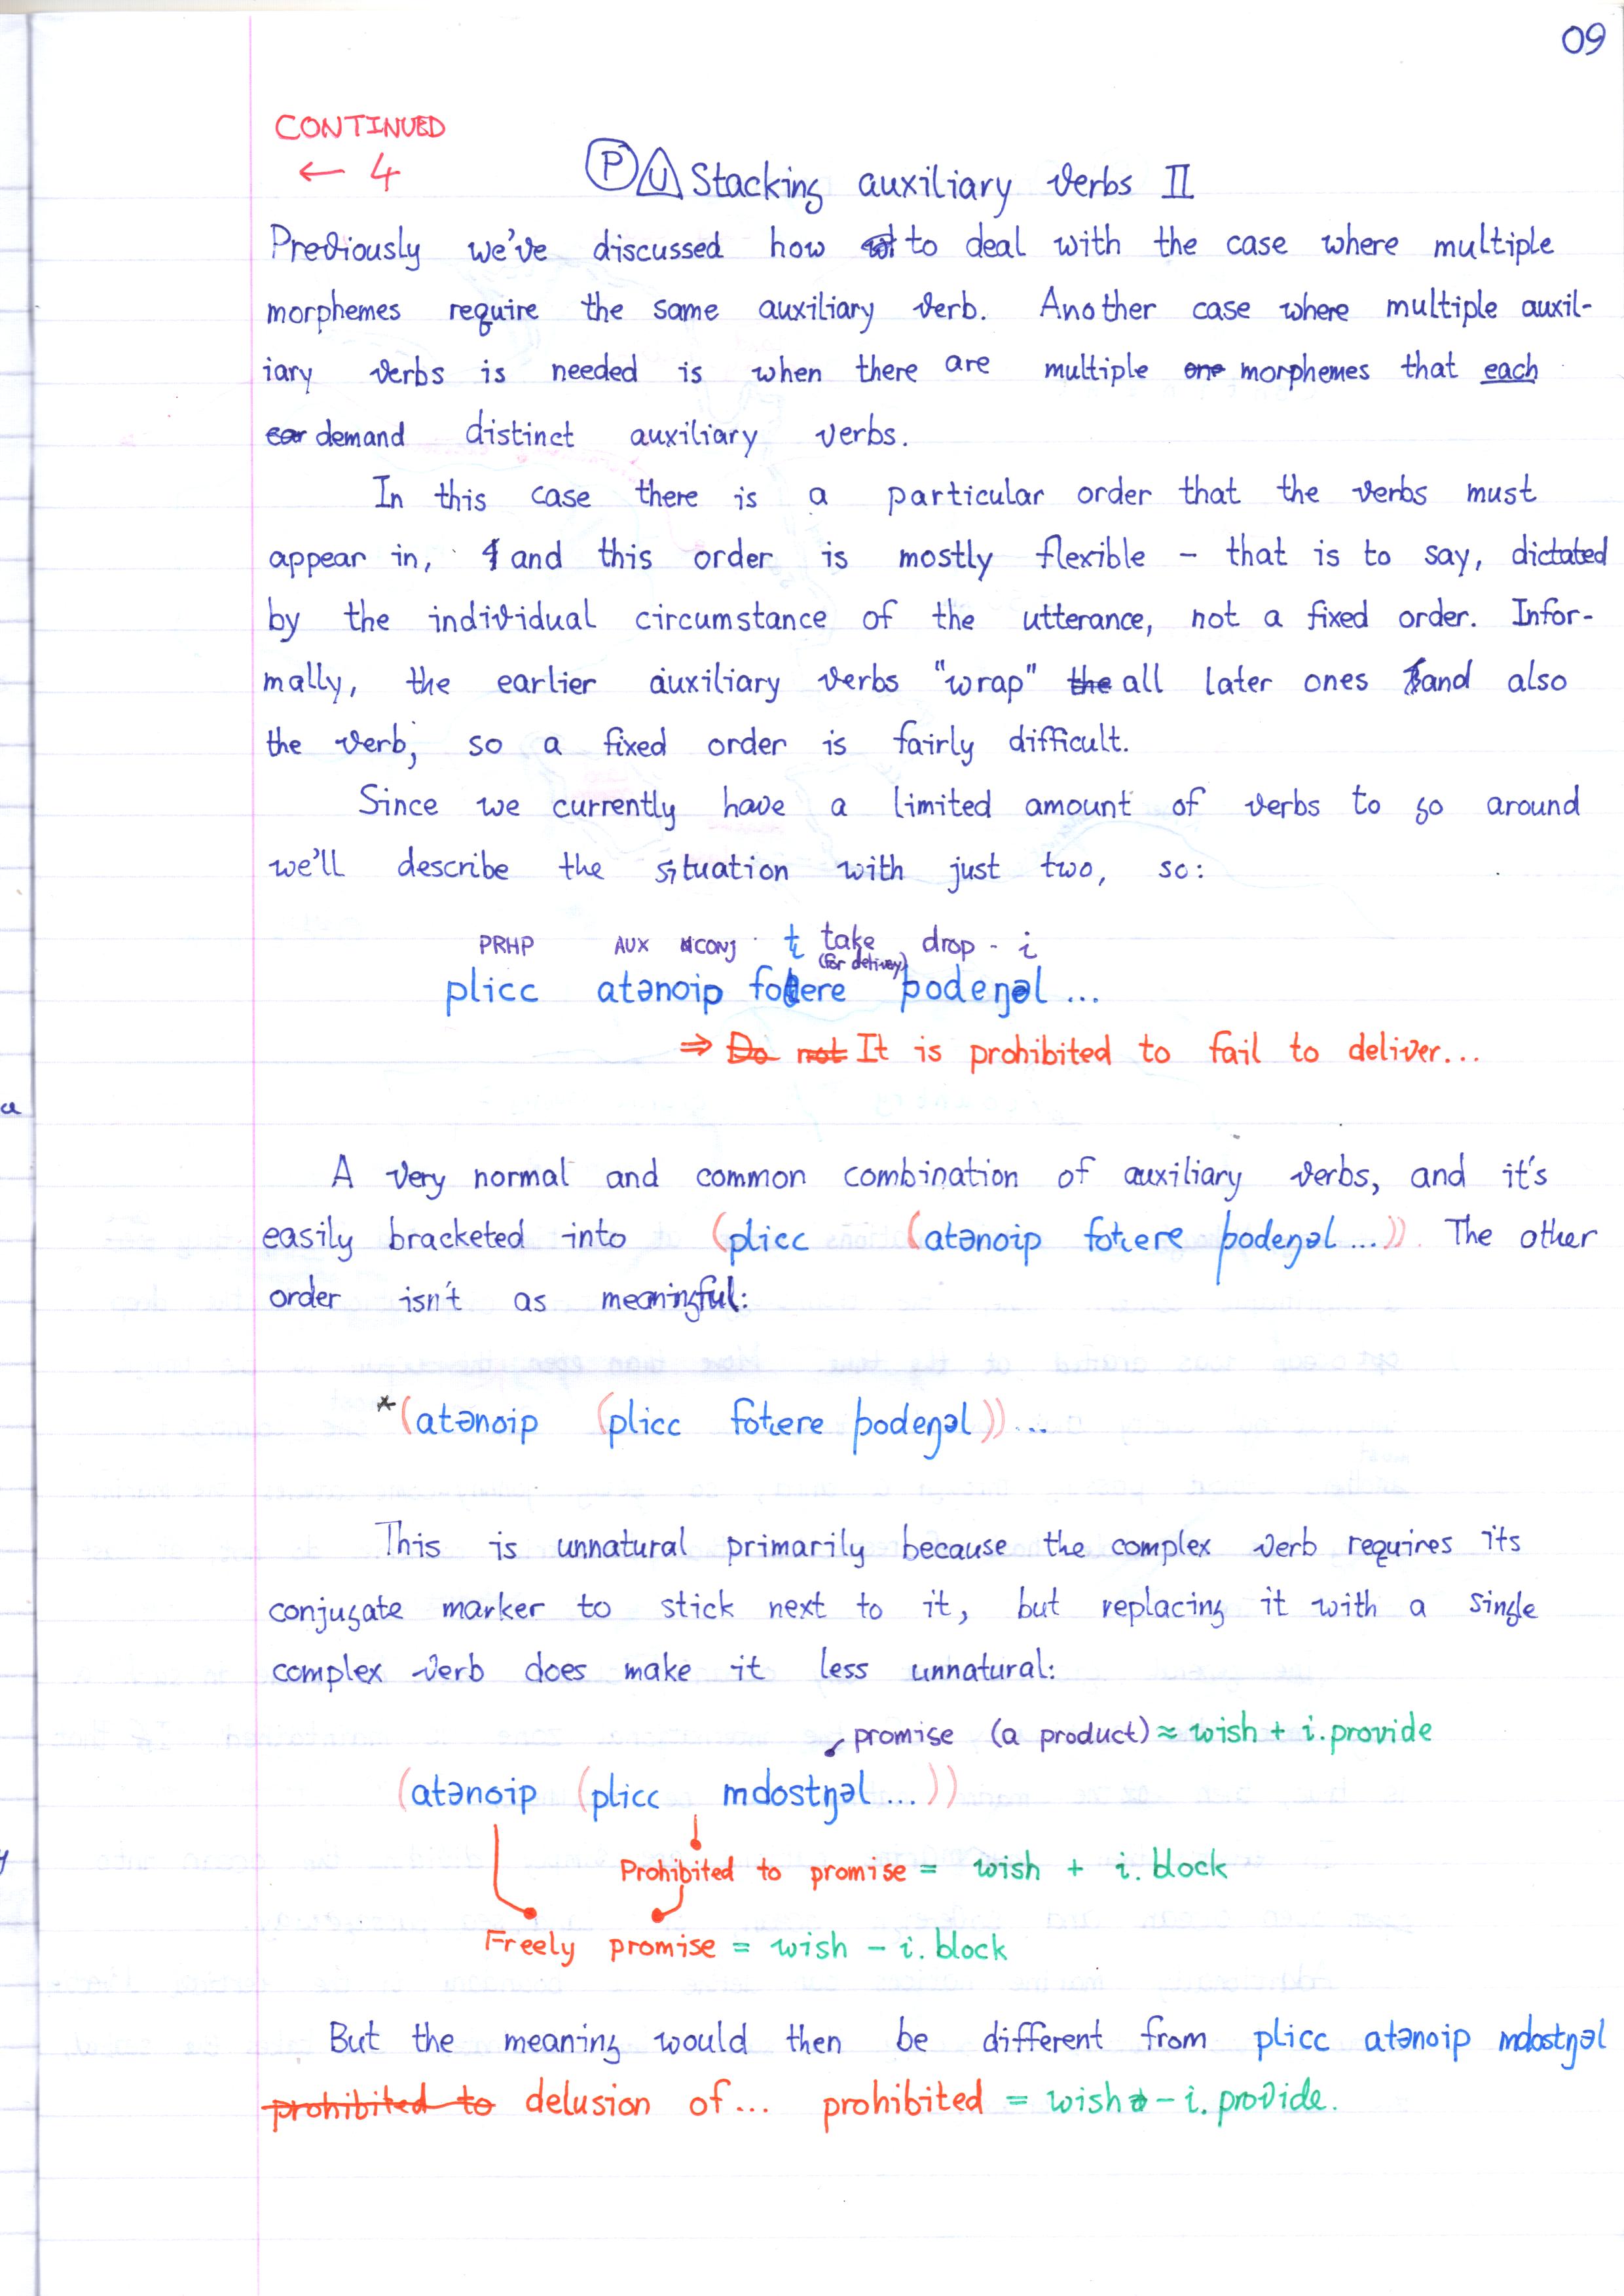 09
CONTINUED
← 4
Ⓟ U Stacking auxiliary verbs II
Previously we've discussed how to deal with the case where multiple
morphemes require the same auxiliary verb. Another case where multiple auxil-
iary verbs is needed is when there are multiple one morphemes that each
demand distinct auxiliary verbs.
In this case there is a particular order that the verbs must
appear in, and this order is mostly flexible – that is to say, dictated
by the individual circumstance of the utterance, not a fixed order. Infor-
mally, the earlier auxiliary verbs "wrap" the all later ones and also
the verb, so a fixed order is fairly difficult.
Since we currently have a limited amount of verbs to go around
we'll describe the situation with just two, so:
PRHP AUX CONJ take drop - i
(for delivery)
plicc atənoıp fotɩere þodeŋəl ...
⇒ Do not It is prohibited to fail to deliver...
a
A very normal and common combination of auxiliary verbs, and it's
easily bracketed into (plicc (atənoıp fotɩere þodeŋəl ...)). The other
order isn't as meaningful:
*(atənoıp (plicc fotɩere þodeŋəl)) ...
This is unnatural primarily because the complex verb requires its
conjugate marker to stick next to it, but replacing it with a single
complex verb does make it less unnatural:
promise (a product) ≈ wish + i.provide
(atənoıp (plicc mdostŋəl ...))
Prohibited to promise = wish + i.block
Freely promise = wish – i.block
But the meaning would then be different from plicc atənoıp mdostŋəl
prohibited to delusion of... prohibited = wish – i.provide.